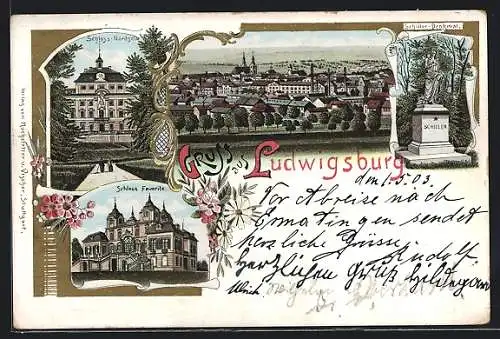 Schloss-Nordseite
Schiller-Denkmal.
SCHILLER
Gruss aus Ludwigsburg
Schloss Favorite
Verlag von Stuttgart.
den 1.5.03
Vor Abreise nach
Ermatingen sendet
herzliche Grüsse
Rudolf.
herzlichen Gruß Hildegard
Ulrich